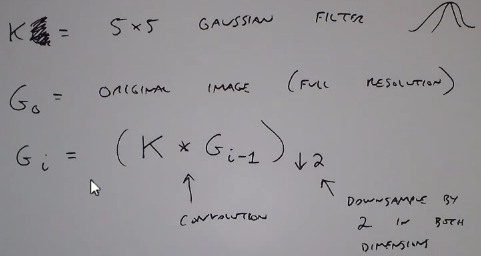 K = 5×5 GAUSSIAN FILTER
G₀ = ORIGINAL IMAGE (FULL RESOLUTION)
Gᵢ = (K * Gᵢ₋₁)↓2
CONVOLUTION
DOWNSAMPLE BY
2 IN BOTH
DIMENSIONS